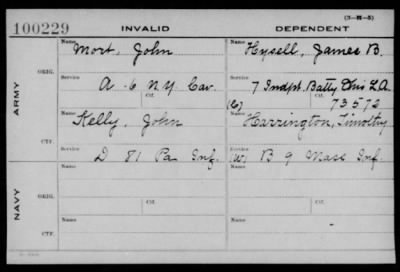 (3-M-5)
100229 INVALID DEPENDENT
Name Mort, John Name Hysell, James B.
ARMY
ORIG.
Service A. 6 N.Y. Cav. Service 7 Indpt. Batty Ohio L.A.
Ctf. Ctf. 73572
Name Kelly, John Name (C) Harrington, Timothy
CTF.
Service D 81 Pa Inf. Service (W) B 9 Mass Inf.
NAVY
Name Name
ORIG.
Ctf. Ctf.
Name Name
CTF.